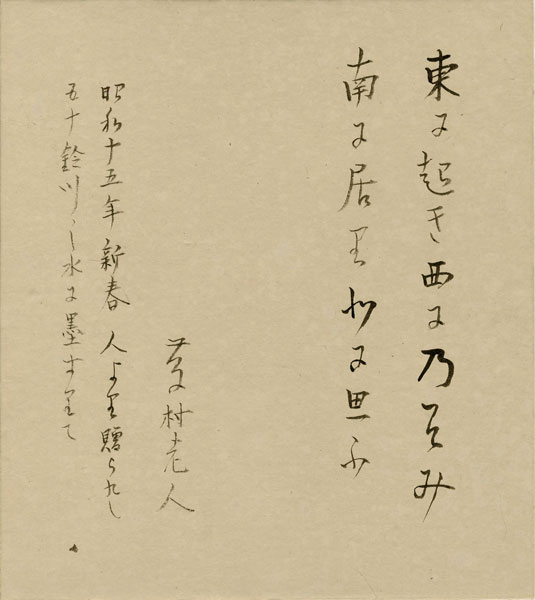 東に起き西にのぞみ
南に居り北に思ふ
藤村老人
昭和十五年新春 人より贈られし
五十鈴川の水に墨すりて